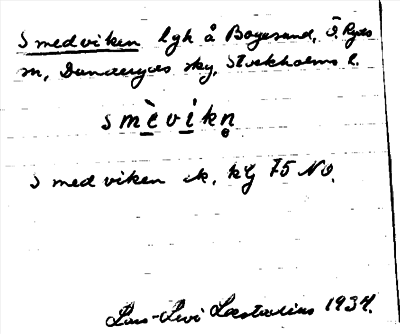 Smedviken lgh å Bogesund, Ö. Ryds
sn, Danderyds skg, Stockholms l.
smèvikn̥
Smedviken ek. kbl 75 NO.
Lars-Levi Læstadius 1934.